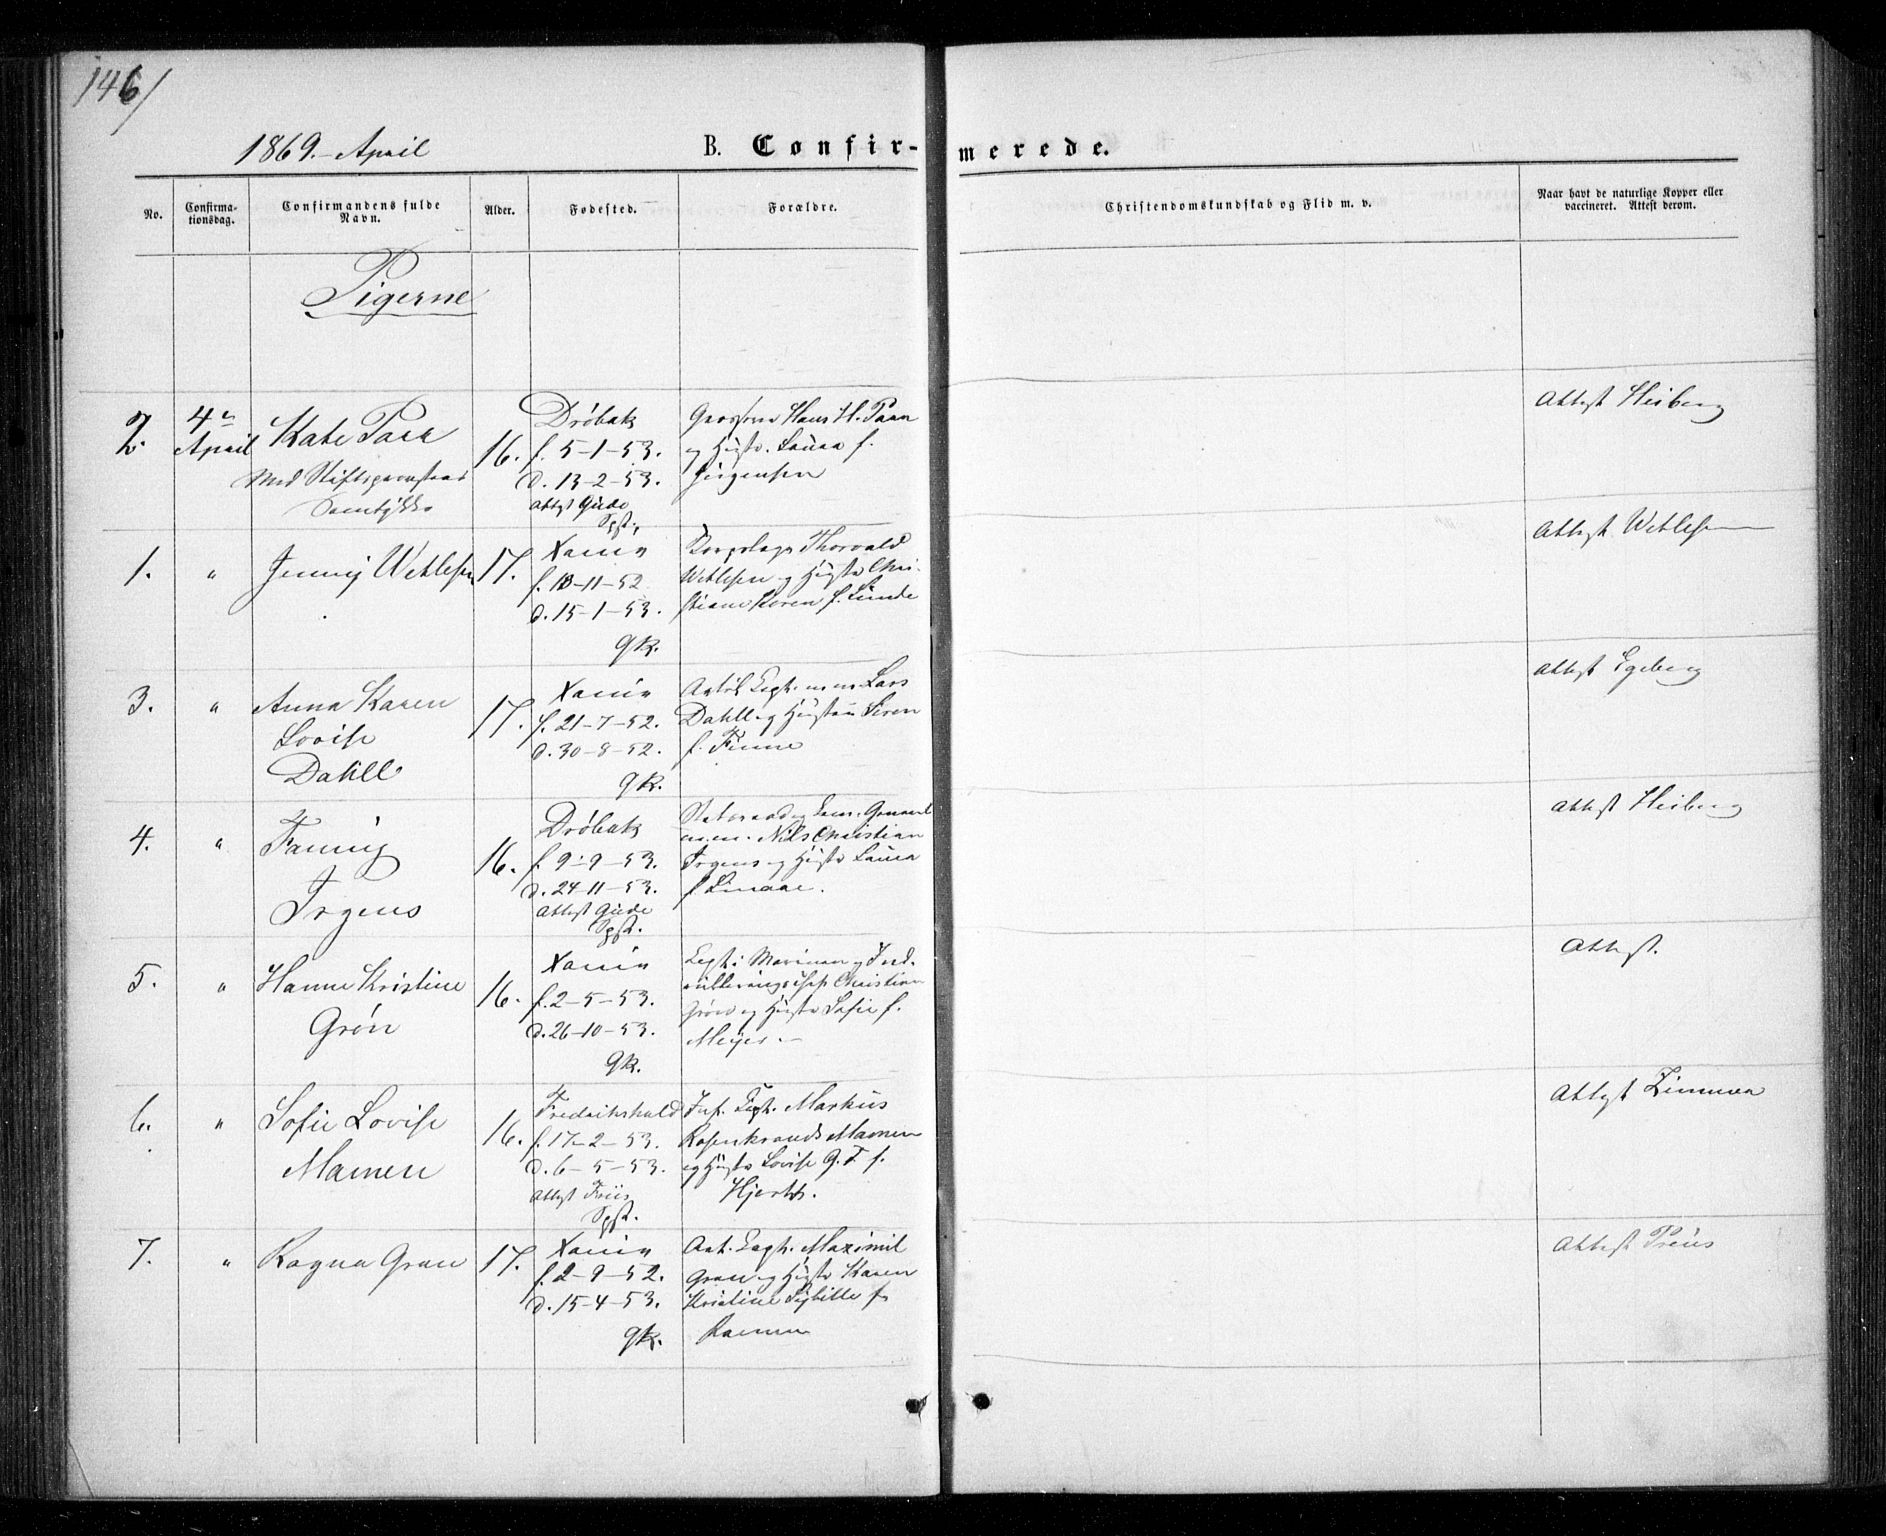 146/
1869. - April
B. Confir-
merede.
No.
Confirma-
tionsdag.
Confirmandens fulde
Navn.
Alder.
Fødested.
Forældre.
Christendomskundskab og Flid m. v.
Naar havt de naturlige Kopper eller
vaccineret. Attest derom.
Pigerne
2.
4de
April
Kate Parr
Med Stiftsprovstens
Samtykke
16.
Drøbak
f. 5-1-53.
d. 13-2-53.
Attest Gude
Spst.
Hans H. Parr
og Hustr. Laura f.
Jørgensen
Attest Heiberg
1.
"
Jenny Wetlesen
17.
Xania
f. 13-11-52
d. 15-1-53.
gk.
Korpslæge Thorvald
Wetlesen og Hustr Chri-
stiane Koren f. Lunde
Attest Wetlesen
3.
"
Anna Karen
Lovise
Dahll
17.
Xania
f. 21-7-52.
d. 30-8-52.
gk.
Artil. Capt. m. m. Lars
Dahll og Hustru
f. Finne
Attest Egeberg
4.
"
Fanny
Irgens
16.
Drøbak
f. 9-9-53.
d. 24-11-53.
Attest Gude
Spst.
Statsraad og
m. m. Nils Christian
Irgens og Hustr Laura
f. Smaae.
Attest Heiberg
5.
"
Hanne Kristine
Grøn
16.
Xania
f. 2-5-53.
d. 26-10-53.
gk.
Capt. i Marinen og Ind-
rulleringschef Christian
Grøn og Hustr Sofie f.
Meyer -
Attest.
6.
"
Sofie Lovise
Mamen
16.
Fredrikshald
f. 17-2-53.
d. 6-5-53.
Attest Friis
Spst.
Inf. Capt. Markus
Rosenkrands Mamen
og Hustr Lovise G. F. f.
Hjorth.
Attest Zimmer
7.
"
Ragna Gran
17.
Xania
f. 2-9-52.
d. 15-4-53.
gk.
Art. Capt. Maximil
Gran og Hustr Karen
Kristine Sybille f.
Attest Preus